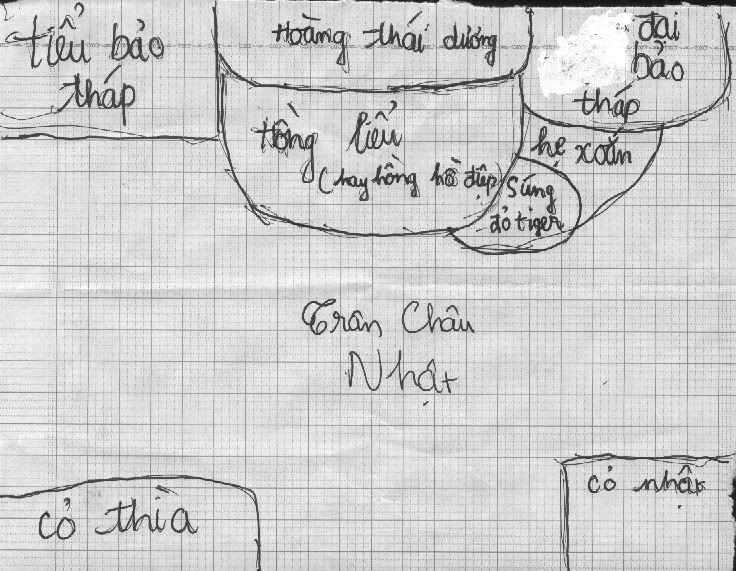 tiểu bảo
tháp
Hoàng thái dương
đại
bảo
tháp
Hồng liểu
(hay hồng hồ điệp)
hẹ xoắn
Súng
đỏ tiger
Trân Châu
Nhật
cỏ thìa
cỏ nhật